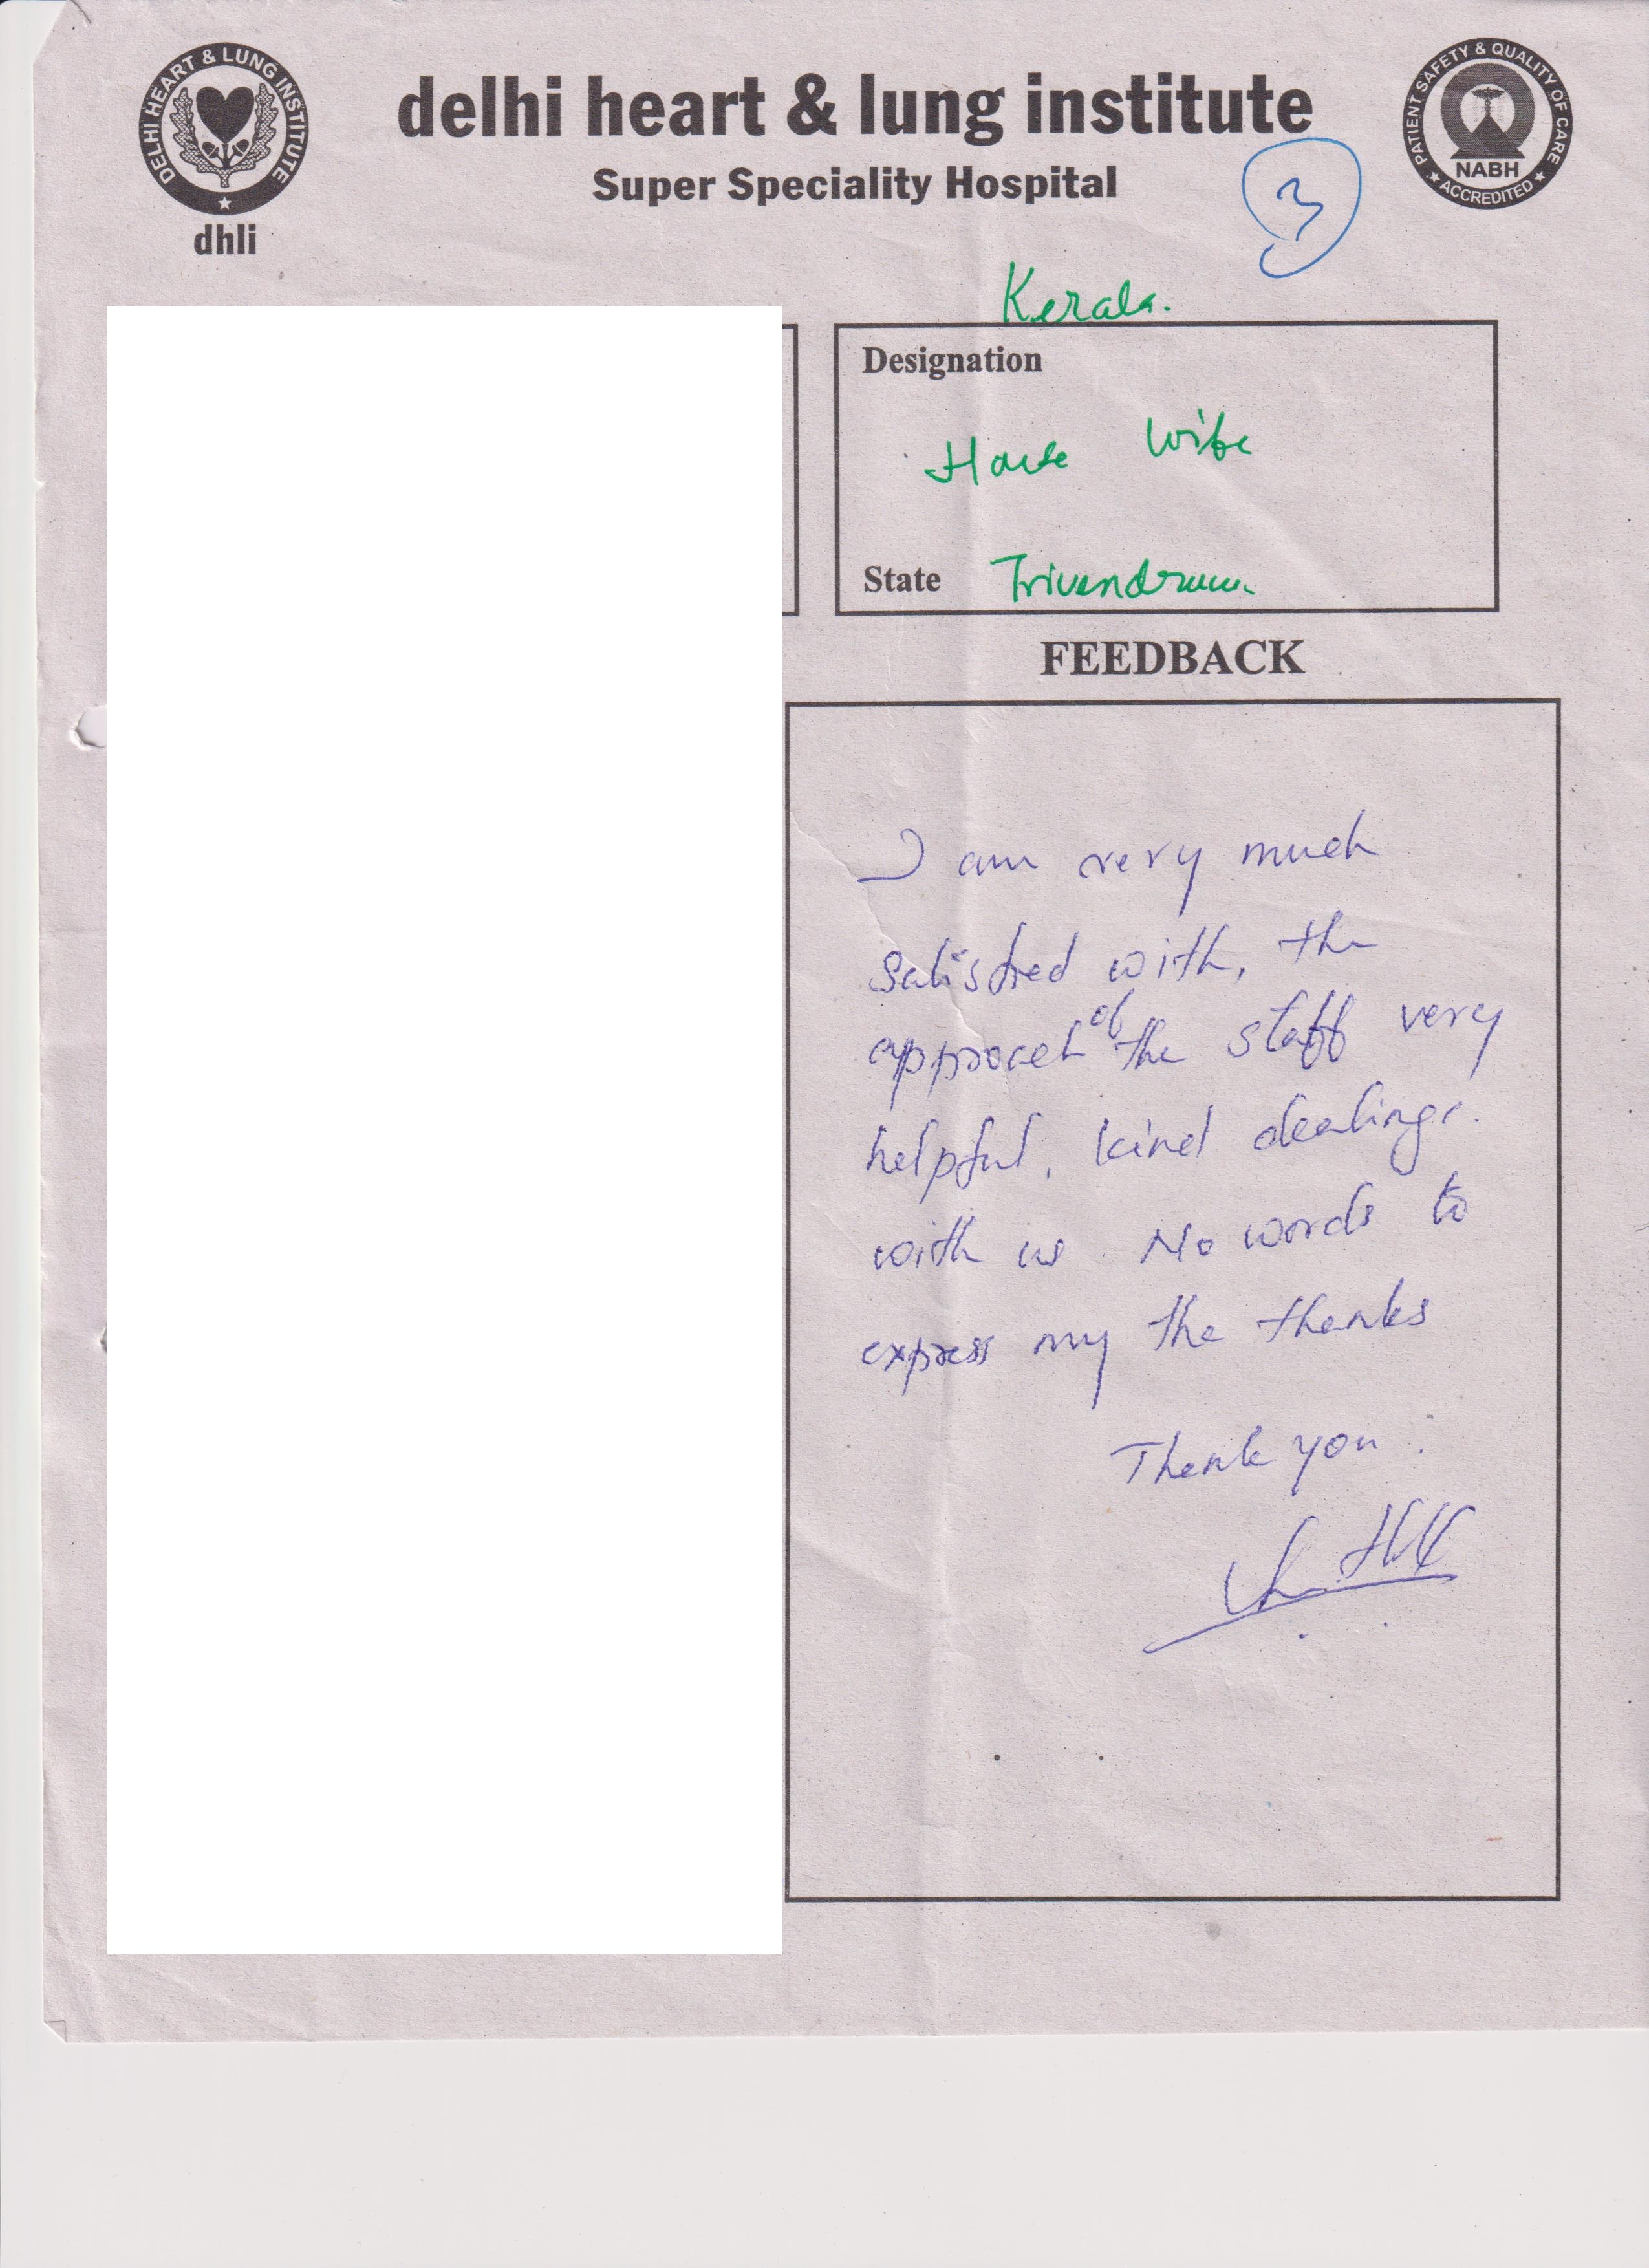 DELHI HEART & LUNG INSTITUTE
dhli
delhi heart & lung institute
Super Speciality Hospital
PATIENT SAFETY & QUALITY OF CARE
NABH
ACCREDITED
3
Kerala.
Designation
House Wife
State Trivandrum.
FEEDBACK
I am very much
satisfied with, the
approach of the staff very
helpful, kind dealings.
with us. No words to
express my the thanks
Thank you.